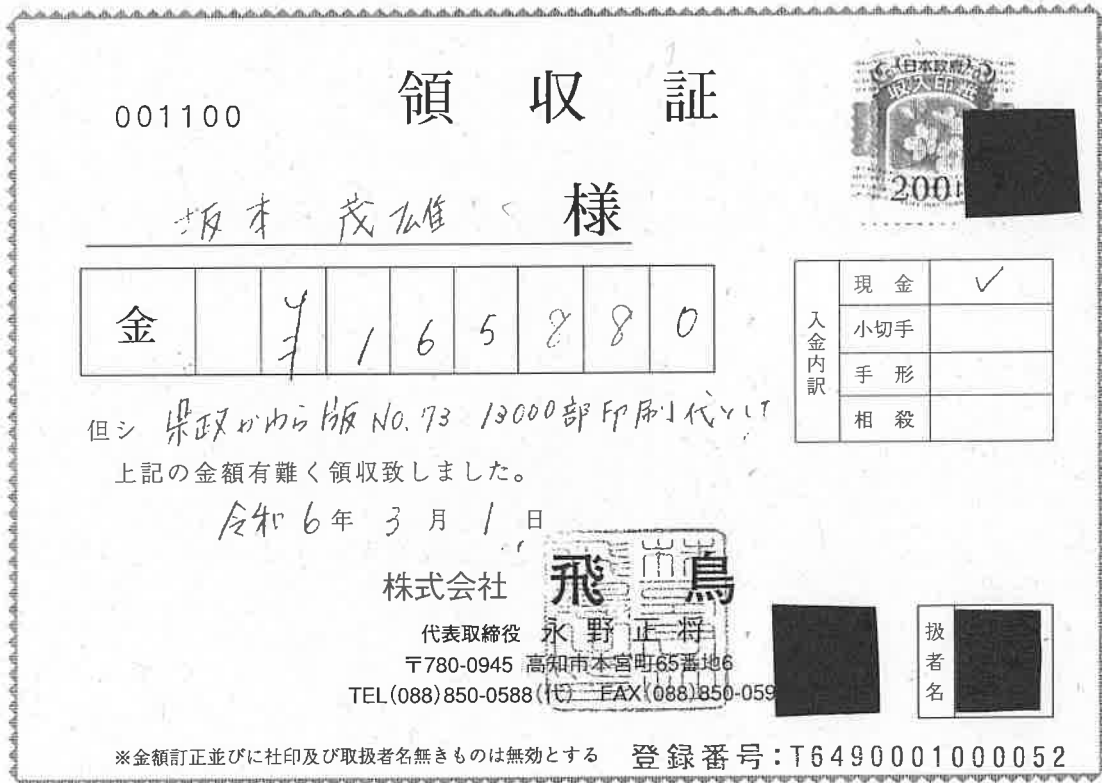 001100
領収証
日本政府
収入印紙
200
坂本 茂雄 様
金 ¥165880
但シ 県政かわら版 No.73 13000部印刷代として
上記の金額有難く領収致しました。
令和6年3月1日
入金内訳
現金 ✓
小切手
手形
相殺
株式会社 飛鳥
代表取締役 永野正将
〒780-0945 高知市本宮町65番地6
TEL(088)850-0588(代) FAX(088)850-059
扱者名
※金額訂正並びに社印及び取扱者名無きものは無効とする
登録番号:T6490001000052